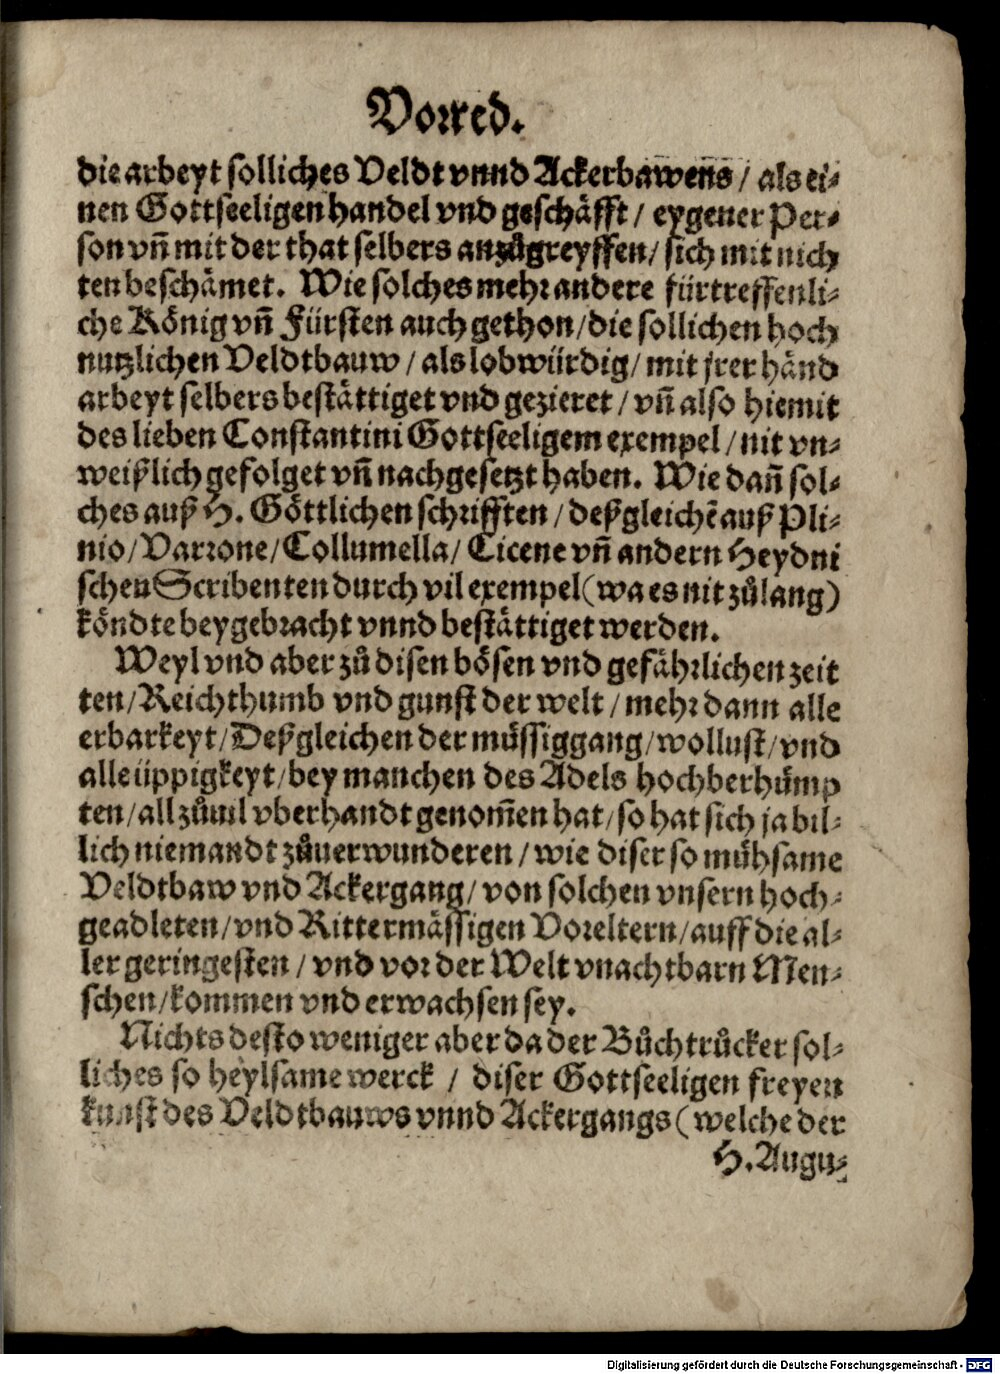 Vorred.
die arbeyt solliches Veldt vnnd Ackerbawens / als ei-
nen Gottseeligen handel vnd geschäfft / eygener Per-
son vñ mit der that selbers anzůgreyffen / sich mit nich
ten beschämet. Wie solches mehr andere fürtreffenli-
che König vñ Fürsten auch gethon / die sollichen hoch
nutzlichen Veldtbauw / als lobwürdig / mit jrer händ
arbeyt selbers bestättiget vnd gezieret / vñ also hiemit
des lieben Constantini Gottseeligem exempel / nit vn-
weißlich gefolget vñ nachgesetzt haben. Wie dañ sol-
ches auß H. Göttlichen schrifften / deßgleichẽ auß Pli-
nio / Varrone / Collumella / Cicene vñ andern Heydni
schen Scribenten durch vil exempel (wa es nit zůlang)
köndte beygebracht vnnd bestättiget werden.
Weyl vnd aber zů disen bösen vnd gefährlichen zeit
ten / Reichthumb vnd gunst der welt / mehr dann alle
erbarkeyt / Deßgleichen der müssiggang / wollust / vnd
alle üppigkeyt / bey manchen des Adels hochberhümp
ten / all zůuil vberhandt genom̃en hat / so hat sich ja bil-
lich niemandt zůuerwunderen / wie diser so mühsame
Veldtbaw vnd Ackergang / von solchen vnsern hoch-
geadleten / vnd Rittermässigen Voreltern / auff die al-
ler geringesten / vnd vor der Welt vnachtbarn Men-
schen / kommen vnd erwachsen sey.
Nichts desto weniger aber da der Bůchtrůcker sol-
liches so heylsame werck / diser Gottseeligen freyen
kunst des Veldtbauws vnnd Ackergangs (welche der
H. Augu-
Digitalisierung gefördert durch die Deutsche Forschungsgemeinschaft - DFG